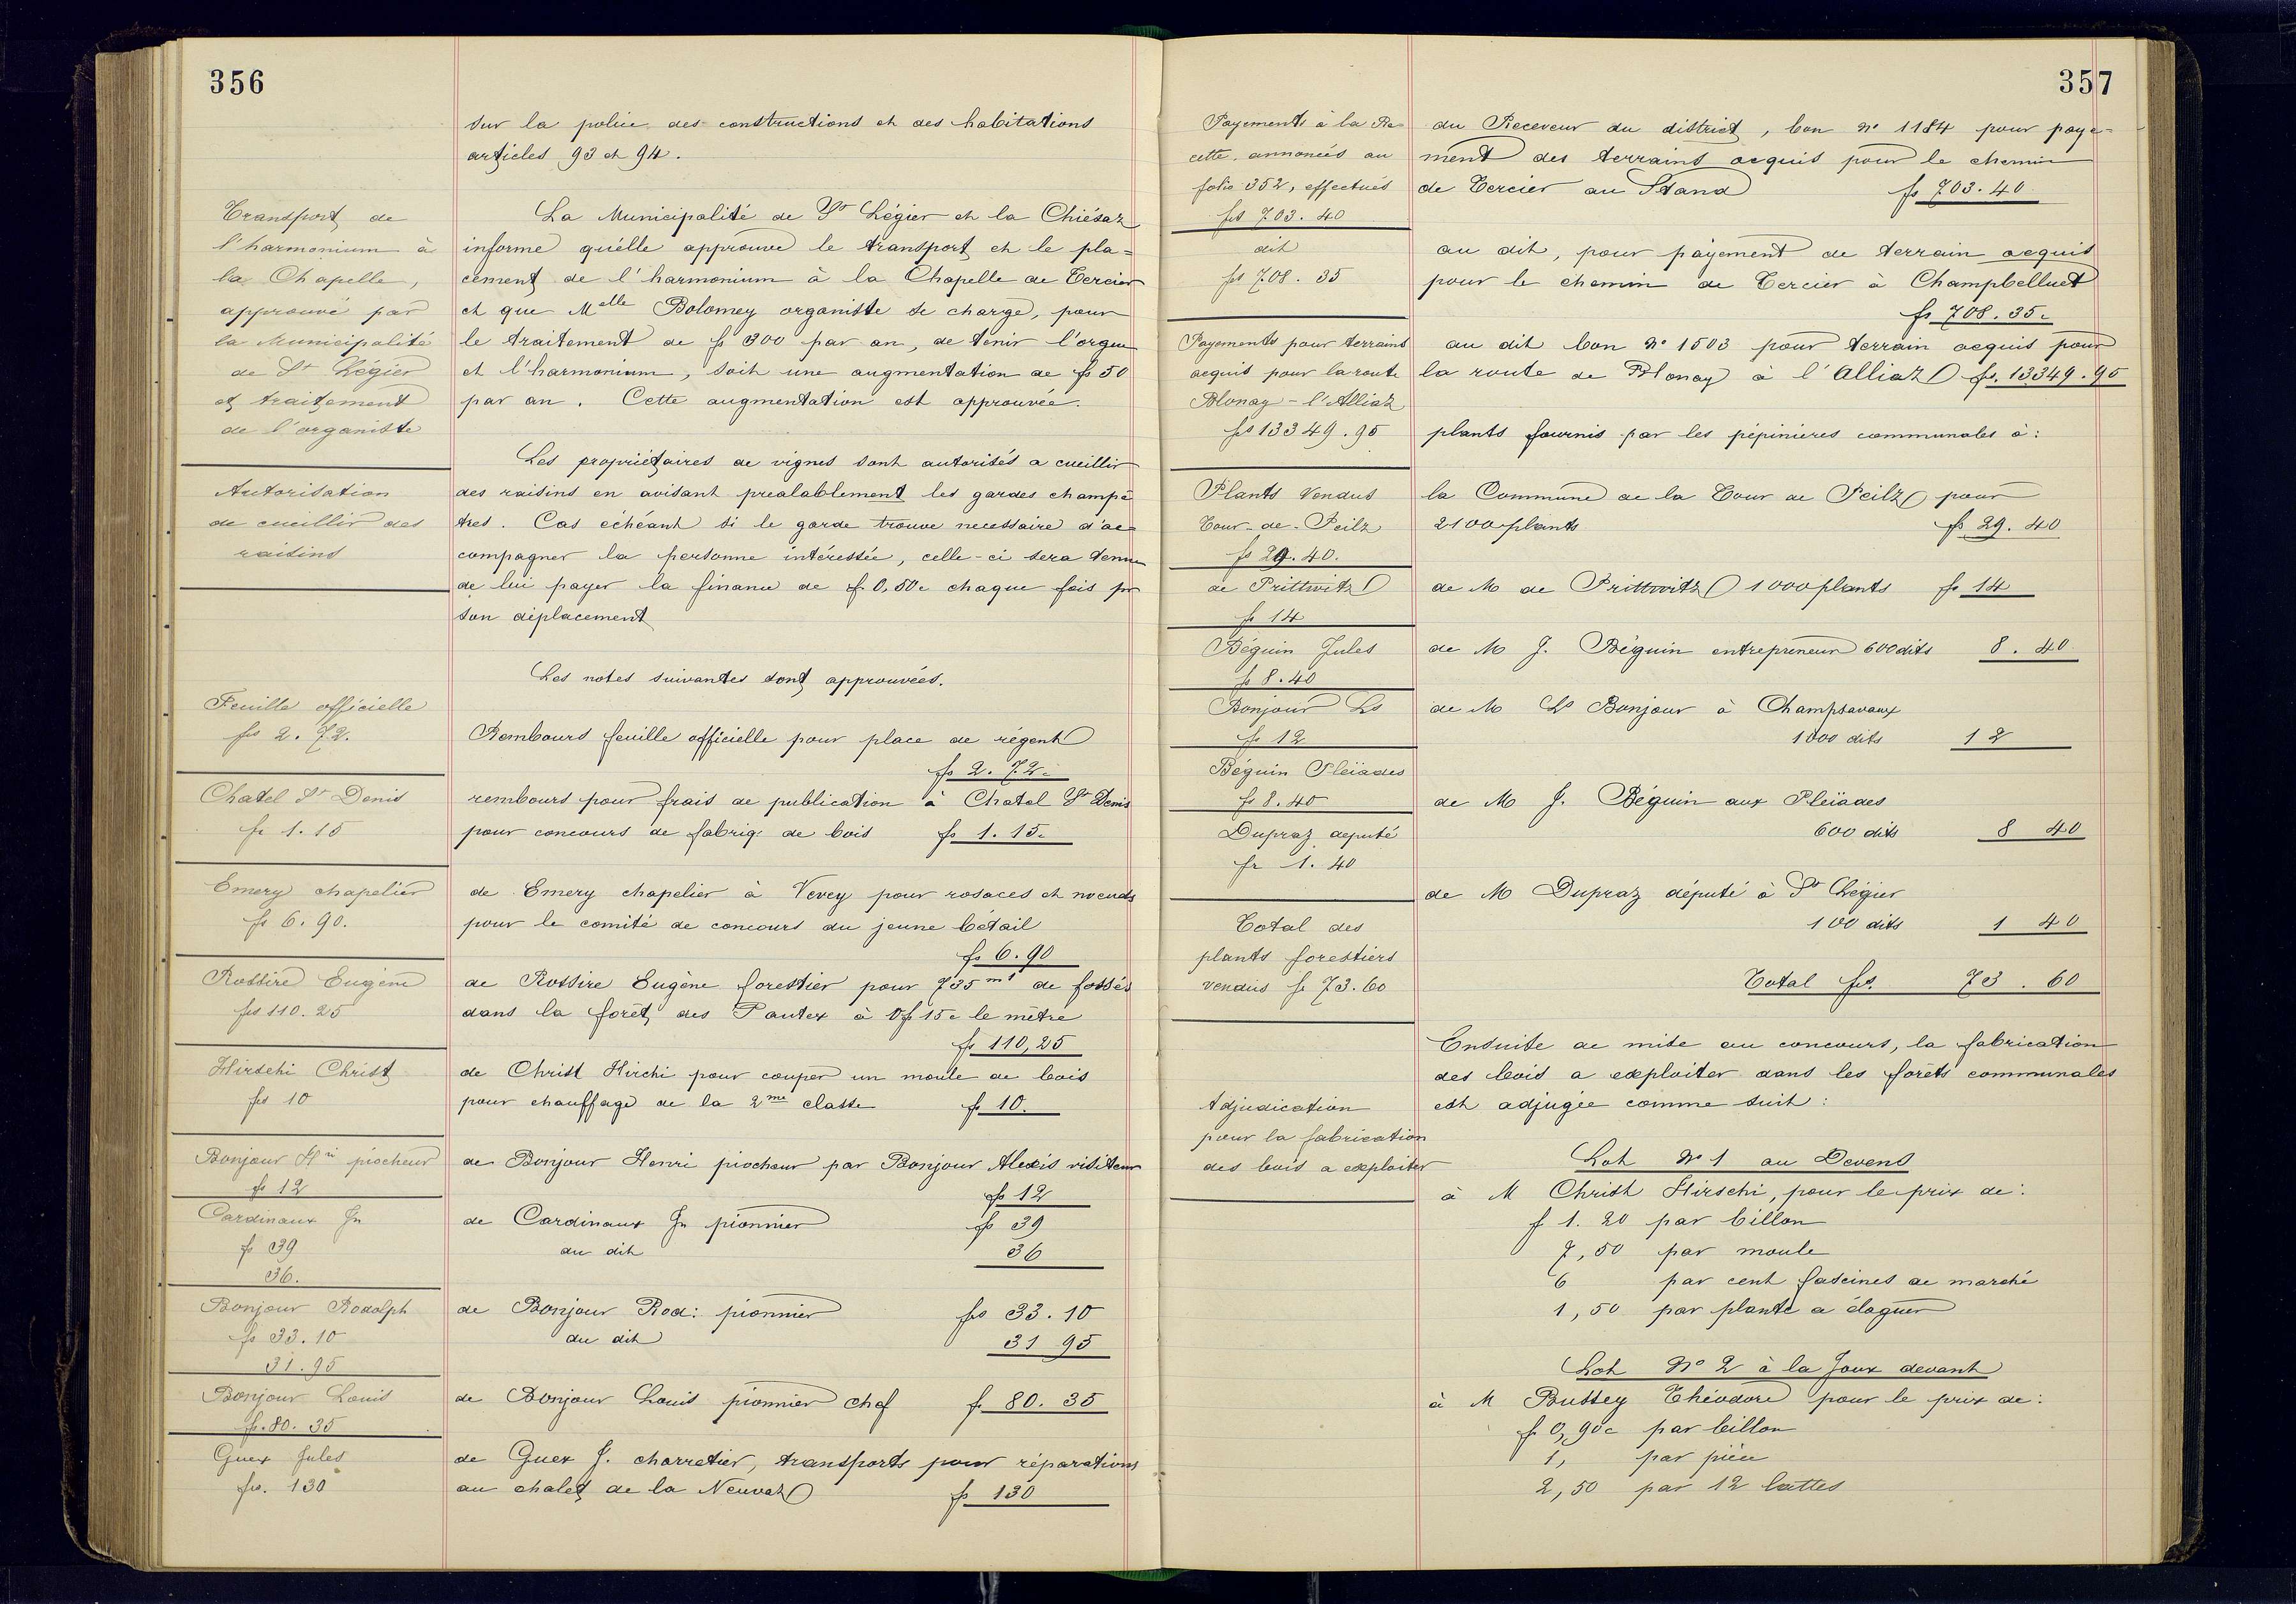 356
sur la police des constructions et des habitations
articles 93 et 94.
Transport de
l'harmonium à
la Chapelle,
approuvé par
la Municipalité
de St Légier
et traitement
de l'organiste
La Municipalité de St Légier et la Chiésaz
informe qu'elle approuve le transport et le pla=
cement de l'harmonium à la Chapelle de Tercier
et que Melle Bolomey organiste se charge, pour
le traitement de f 300 par an, de tenir l'orgue
et l'harmonium, soit une augmentation de fs 50
par an. Cette augmentation est approuvée.
Autorisation
de cueillir des
raisins
Les propriétaires de vignes sont autorisés a cueillir
des raisins en avisant prealablement les gardes champê
tres. Cas échéant si le garde trouve necessaire d'ac=
compagner la personne intéressée, celle-ci sera tenue
de lui payer la finance de f 0,50c chaque fois pr
son déplacement
Les notes suivantes sont approuvées.
Feuille officielle
fs 2.72.
Rembours feuille officielle pour place de régent
fs 2.72c
Chatel St Denis
fr 1.15
rembours pour frais de publication à Chatel St Denis
pour concours de fabriqe de bois fs 1.15c
Emery chapelier
fs 6.90.
de Emery chapelier à Vevey pour rosaces et noeuds
pour le comité de concours du jeune bétail
fs 6.90
Rossire Eugène
fs 110.25
de Rossire Eugène forestier pour 735 mt de fossés
dans la forêt des Pautex à 0f 15c le mètre
fs 110,25
Hirschi Christ
fs 10
de Christ Hirchi pour couper un moule de bois
pour chauffage de la 2me classe f 10.
Bonjour Hri piocheur
fs 12
de Bonjour Henri piocheur par Bonjour Alexis visiteur
fs 12
Cardinaux Jn
fs 39
36.
de Cardinaux Jn pionnier fs 39
du dit 36
Bonjour Rodolph
fs 33.10
31.95
de Bonjour Rod: pionnier fs 33.10
du dit 31 95
Bonjour Louis
fr. 80.35
de Bonjour Louis pionnier chef f 80.35
Guex Jules
fr. 130
de Guex J. charretier, transports pour réparations
au chalet de la Neuvaz fs 130
357
Payements à la Re
cette annoncés au
folio 352, effectués
fs 703.40
du Receveur du district, bon No 1184 pour paye=
ment des terrains acquis pour le chemin
de Tercier au Stand fs 703.40
dit
fs 708.35
au dit, pour payement de terrain acquis
pour le chemin de Tercier à Champbelluet
fs 708.35c
Payements pour terrains
acquis pour la route
Blonay - l'Alliaz
fs 13349.95
au dit bon No 1503 pour terrain acquis pour
la route de Blonay à l'Alliaz fs. 13349.95
plants fournis par les pépinieres communales à:
Plants vendus
Tour-de-Peilz
fs 29.40.
la Commune de la Tour de Peilz pour
2100 plants fs 29.40
de Prittwitz
fs 14
de M de Prittwitz 1000 plants fs 14
Béguin Jules
fs 8.40
de M J. Béguin entrepreneur 600 dits 8.40
Bonjour Ls
fs 12
de M Ls Bonjour à Champsavaux
1000 dits 12
Béguin Pleïades
fs 8.40
de M J. Béguin aux Pleïades
600 dits 8 40
Dupraz député
fr 1.40
de M Dupraz député à St Légier
100 dits 1 40
Total des
plants forestiers
vendus fs 73.60
Total frs. 73.60
Ensuite de mise au concours, la fabrication
des bois a exploiter dans les forêts communales
est adjugée comme suit:
Adjudication
pour la fabrication
des bois a exploiter
Lot No 1 au Devens
à M Christ Hirschi, pour le prix de:
f 1.20 par billon
7,50 par moule
6 par cent fascines de marché
1,50 par plante a élaguer
Lot No 2 à la Joux devant
à M Bussey Théodore pour le prix de:
f 0,90c par billon
1, par pièce
2,50 par 12 lattes